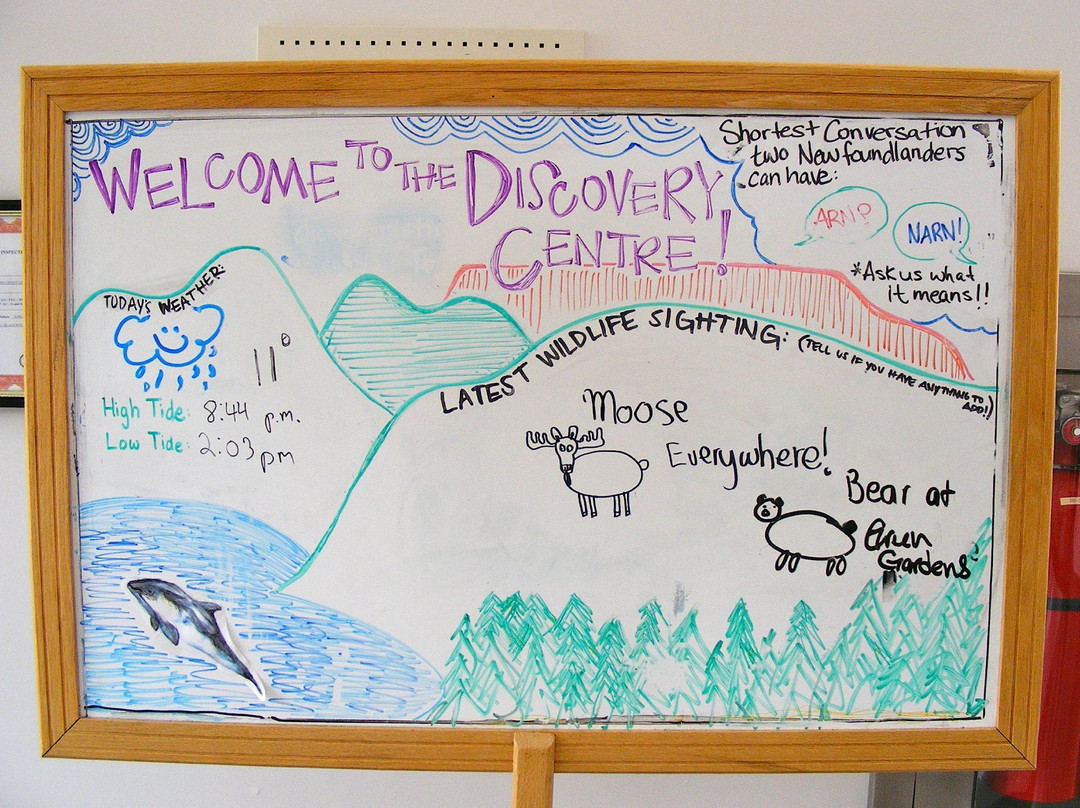 WELCOME TO THE DISCOVERY
CENTRE!
Shortest Conversation
two Newfoundlanders
can have:
ARN?
NARN!
*Ask us what
it means!!
TODAY'S WEATHER:
11°
High Tide: 8:44 p.m.
Low Tide: 2:03 pm
LATEST WILDLIFE SIGHTING: (TELL US IF YOU HAVE ANYTHING TO
ADD!)
Moose
Everywhere!
Bear at
Green
Gardens